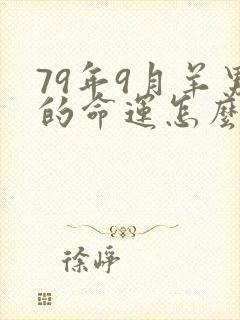 79年9月羊男
的命运怎麼
徐峥